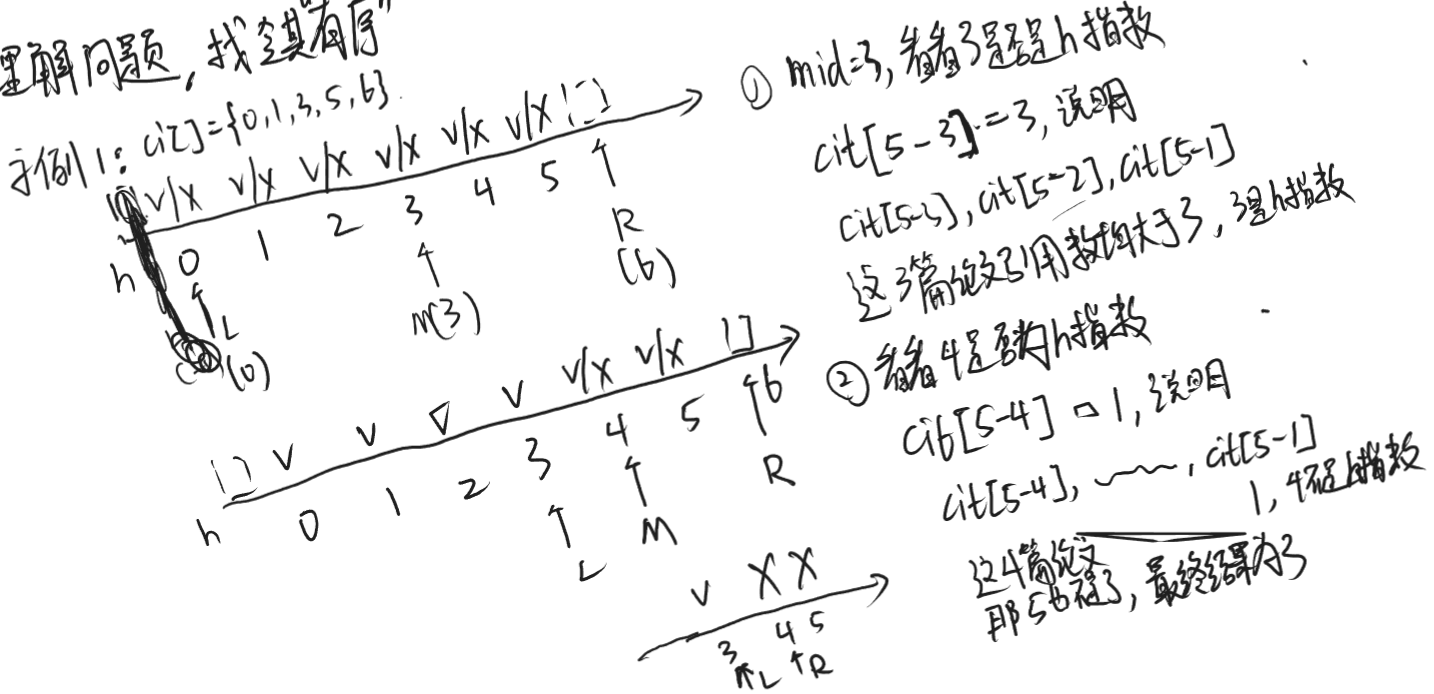 理解问题,找全其"有序"
示例1: cit[]={0,1,3,5,6}.
V/X V/X V/X V/X V/X V/X []
h 0 1 2 3 4 5
L
(0)
M(3)
R
(6)
① mid=3,看看3是否是h指数
cit[5-3]=3,说明
cit[5-3],cit[5-2],cit[5-1]
这3篇论文引用数均大于3,3是h指数
[] V V V V V/X V/X []
h 0 1 2 3 4 5 6
L M R
② 看看4是否为h指数
cit[5-4]=1,说明
cit[5-4], ,cit[5-1]
1,4不是h指数
这4篇论文
那5也不是了,最终结果为3
V X X
3 4 5
L R